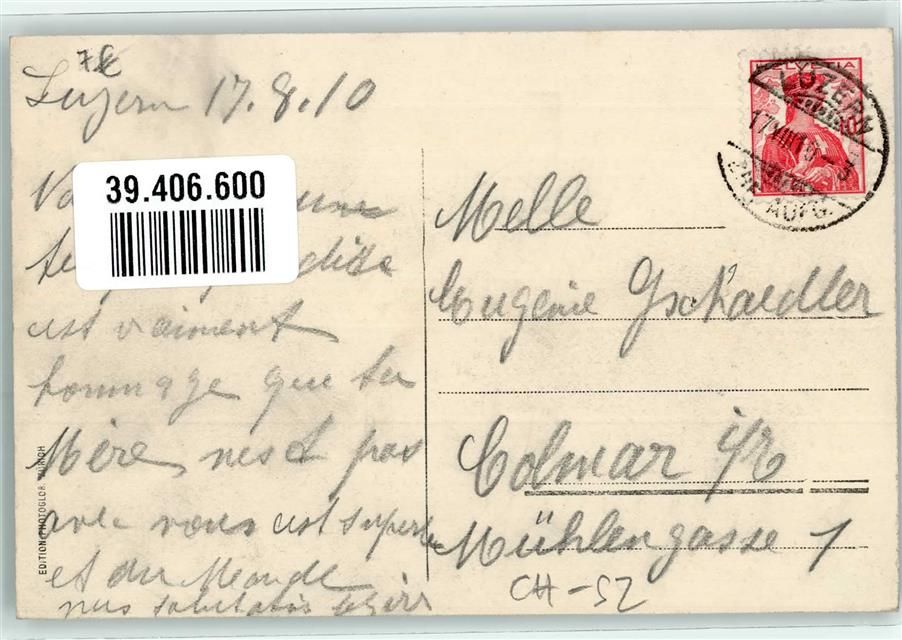 7.-
Luzern 17.8.10
39.406.600
est vraiment
tommage que ta
Mère nest pas
avec vous est superbe
et du Monde
nos salutations
EDITION PHOTOGLOB, ZÜRICH
HELVETIA
LUZERN
17 VIII 10
BRF. AUFG.
Melle
Eugénie Gschaedler
Colmar i/E
Mühlengasse 1
CH-SZ